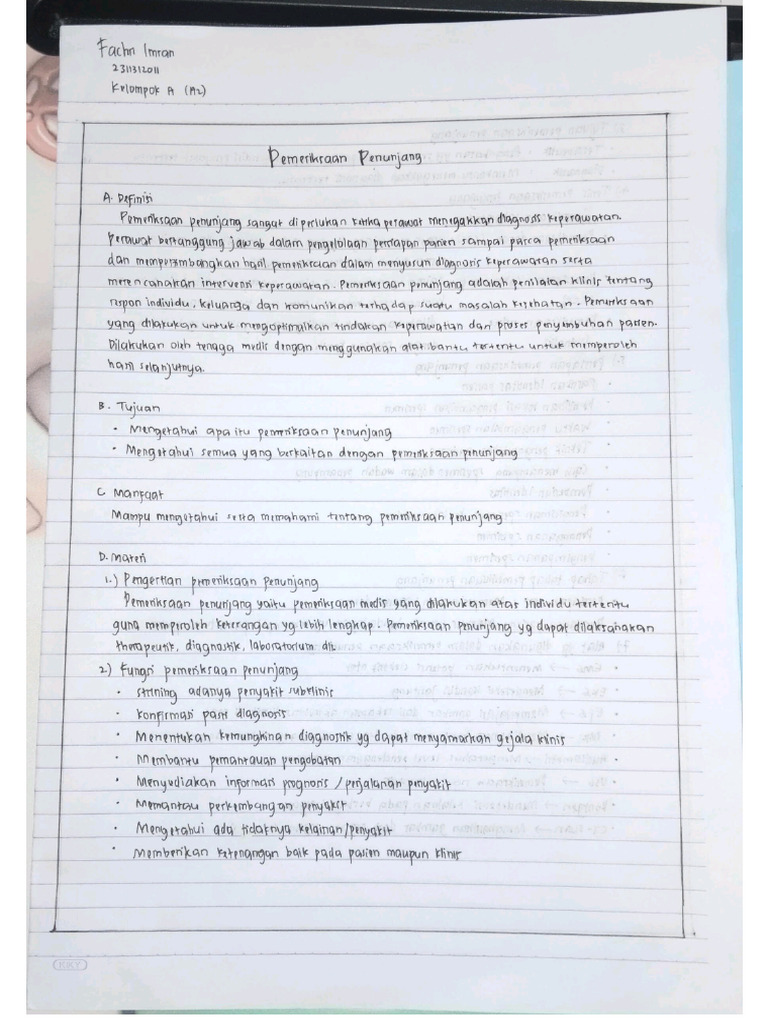 Fachri Imran
2311312011
Kelompok A (A2)
Pemeriksaan Penunjang
A. Definisi
Pemeriksaan penunjang sangat diperlukan ketika perawat menegakkan diagnosis keperawatan.
Perawat bertanggung jawab dalam pengelolaan persiapan pasien sampai pasca pemeriksaan
dan mempertimbangkan hasil pemeriksaan dalam menyusun diagnosis keperawatan serta
merencanakan intervensi keperawatan. Pemeriksaan penunjang adalah penilaian klinis tentang
respon individu, keluarga dan komunikan terhadap suatu masalah kesehatan. Pemeriksaan
yang dilakukan untuk mengoptimalkan tindakan keperawatan dan proses penyembuhan pasien.
Dilakukan oleh tenaga medis dengan menggunakan alat bantu tertentu untuk memperoleh
hasil selanjutnya.
B. Tujuan
• Mengetahui apa itu pemeriksaan penunjang
• Mengetahui semua yang berkaitan dengan pemeriksaan penunjang
C. Manfaat
Mampu mengetahui serta memahami tentang pemeriksaan penunjang
D. Materi
1.) Pengertian pemeriksaan penunjang
Pemeriksaan penunjang yaitu pemeriksaan medis yang dilakukan atas individu tertentu
guna memperoleh keterangan yg lebih lengkap. Pemeriksaan penunjang yg dapat dilaksanakan
therapeutik, diagnostik, laboratorium dll.
2.) Fungsi pemeriksaan penunjang
• Skrining adanya penyakit subklinis
• Konfirmasi pasti diagnosis
• Menentukan kemungkinan diagnostik yg dapat menyamarkan gejala klinis
• Membantu pemantauan pengobatan
• Menyediakan informasi prognosis / perjalanan penyakit
• Memantau perkembangan penyakit
• Mengetahui ada tidaknya kelainan/penyakit
• Memberikan ketenangan baik pada pasien maupun klinis
KKY